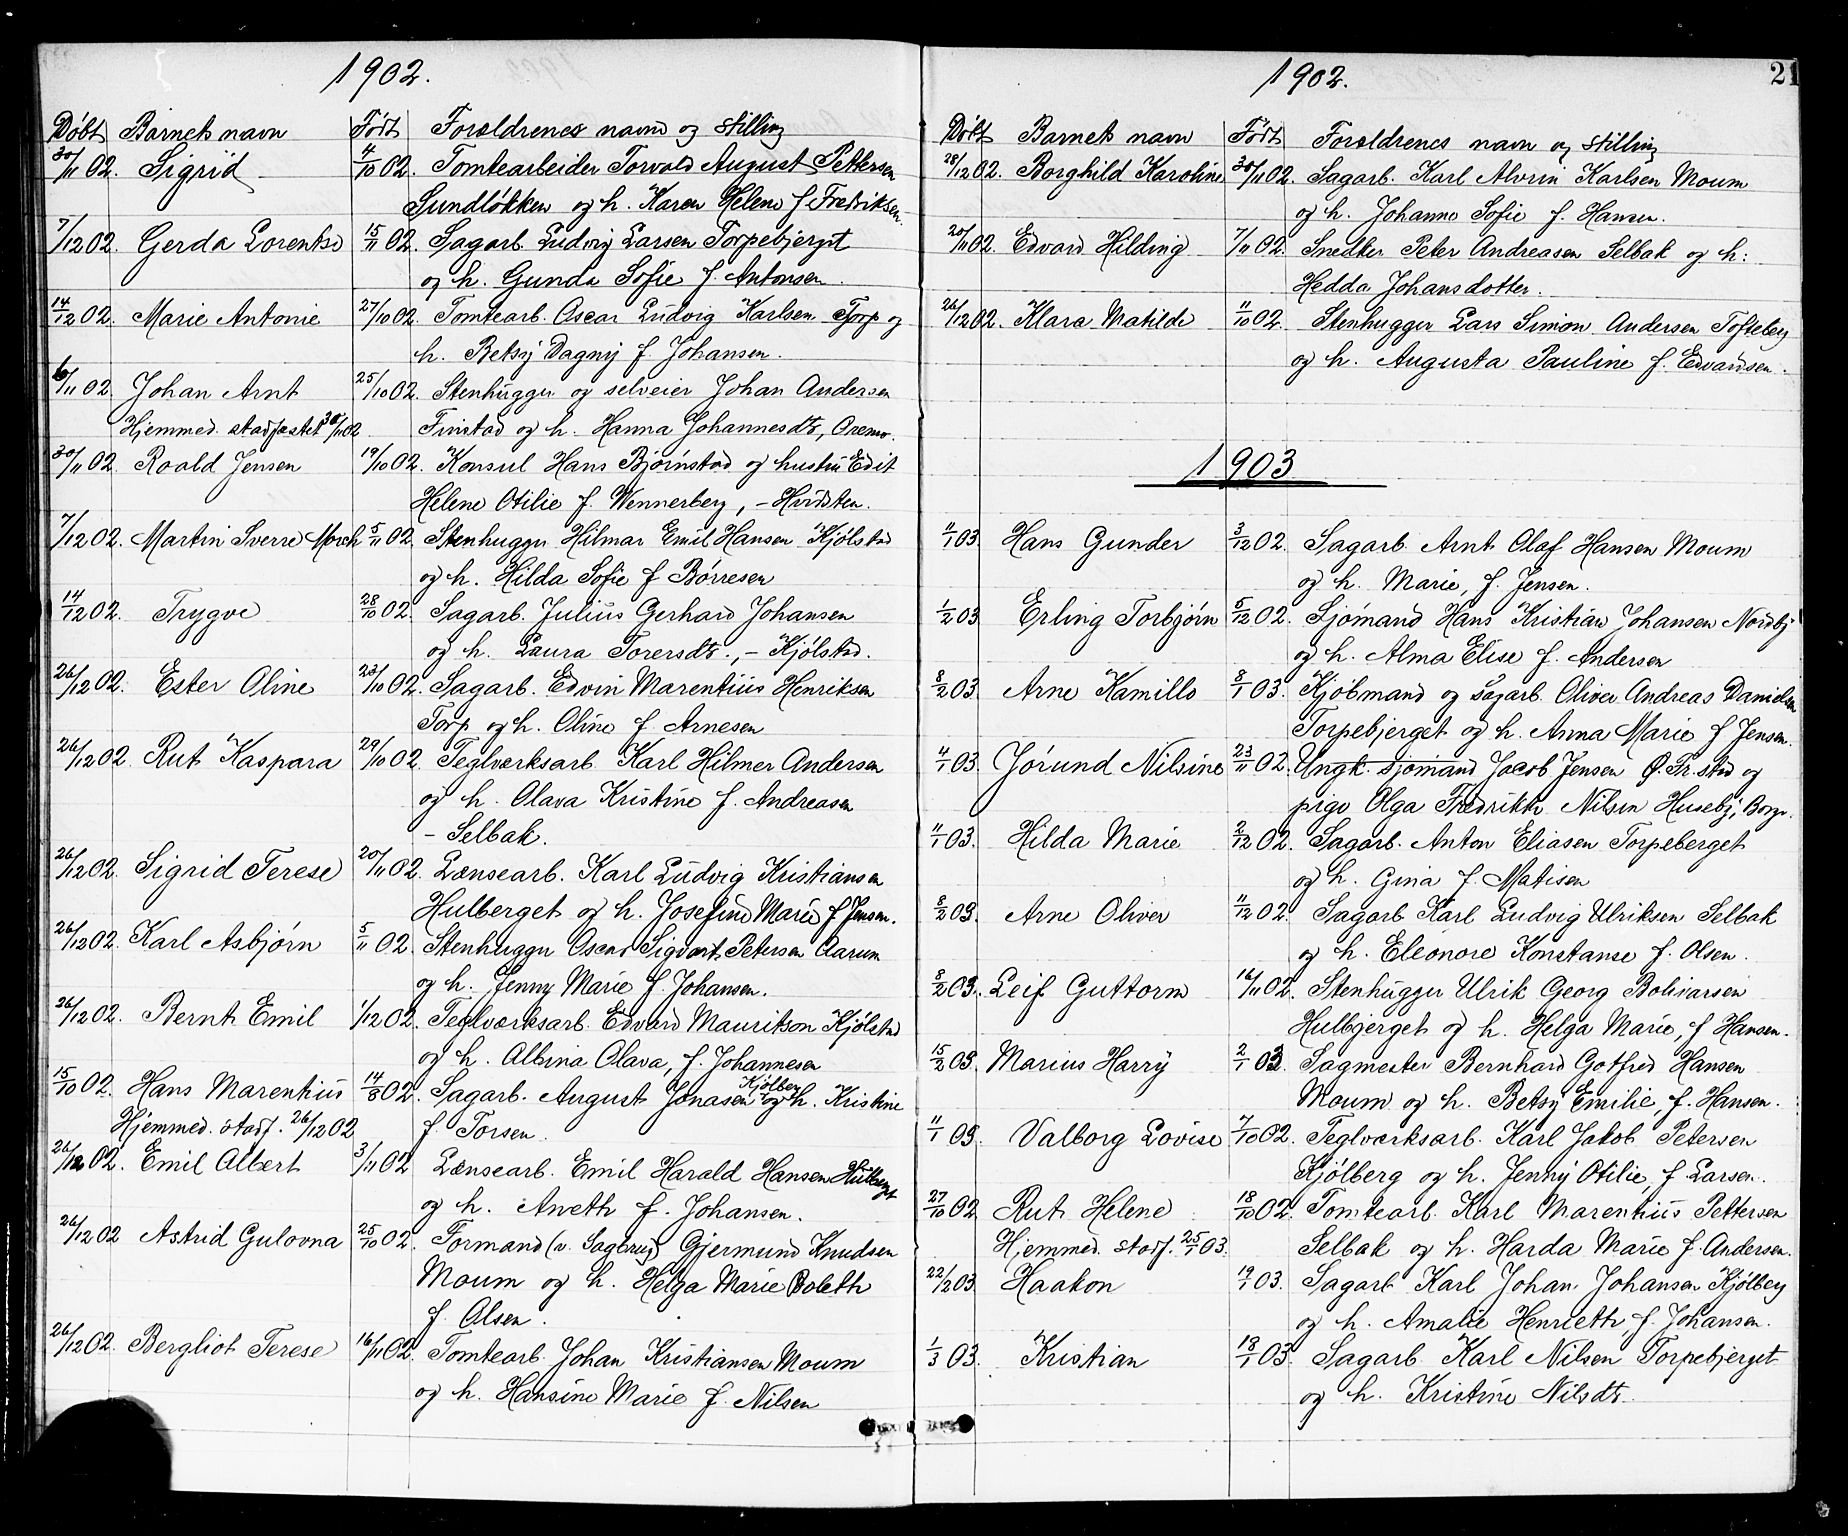 1902.
Døbt Barnets navn Født Forældrenes navn og stilling
30/11 02. Sigrid 4/10 02. Tomtearbeider Torvald August Pettersen
Sundløkken og h. Karen Helene f. Fredriksen.
7/12 02. Gerda Lorentse 15/11 02. Sagarb. Ludvig Larsen Torpebjerget
og h. Gunda Sofie f. Antonsen.
14/12 02. Marie Antonie 27/10 02. Tomtearb. Oscar Ludvig Karlsen Torp og
h. Betsy Dagny f. Johansen.
6/11 02. Johan Arnt 25/10 02. Stenhugger og selveier Johan Andersen
Hjemmed. stadfæstet 30/11 02 Finstad og h. Hanna Johannesdt, Oremo.
30/11 02. Roald Jensen 19/10 02. Konsul Hans Bjørnstad og hustru Edit
Helene Otilie f. Wennerberg, – Hvidsten.
7/12 02. Martin Sverre Morck 5/11 02. Stenhugger Hilmar Emil Hansen Kjølstad
og h. Hilda Sofie f Børresen
14/12 02. Trygve 28/10 02. Sagarb. Julius Gerhard Johansen
og h. Laura Torersdt., – Kjølstad.
26/12 02. Ester Oline 23/10 02. Sagarb. Edvin Marentius Henriksen
Torp og h. Oline f Arnesen
26/12 02 Rut Kaspara 29/10 02. Teglværksarb. Karl Hilmer Andersen
og h. Olava Kristine f. Andreasen
– Selbak.
26/12 02. Sigrid Terese 20/11 02. Lænsearb. Karl Ludvig Kristiansen
Hulberget og h. Josefine Marie f Jensen.
26/12 02. Karl Asbjørn 5/11 02. Stenhugger Oscar Sigvart Petersen Aarum
og h. Jenny Marie f. Johansen.
26/12 02. Bernt Emil 1/12 02. Teglværksarb. Edvard Mauritson Kjølstad
og h. Albina Olava, f. Johannesen
15/10 02. Hans Marentius 14/8 02. Sagarb. August Jonasen Kjølberg og h. Kristine
Hjemmed. stadf. 26/12 02 f. Torsen.
26/12 02. Emil Albert 3/11 02 Lænsearb. Emil Harald Hansen Hulberget
og h. Aneth f. Johansen.
26/12 02 Astrid Gulovna 25/10 02. Formand (v. Sagbrug) Gjermund Knudsen
Moum og h. Helga Marie Boleth
f. Olsen.
26/12 02. Bergliot Terese 16/11 02. Tomtearb. Johan Kristiansen Moum
og h. Hansine Marie f. Nilsen
1902.
21
Døbt Barnets navn Født Forældrenes navn og stilling
28/12 02. Borghild Karoline 30/11 02. Sagarb. Karl Alvrin Karlsen Moum
og h. Johanne Sofie f. Hansen.
20/11 02. Edvard Hilding 7/11 02. Snedker Peter Andreasen Selbak og h:
Hedda Johansdotter.
26/12 02. Klara Matilde 11/10 02 Stenhugger Lars Simon Andersen Tofteberg
og h. Augusta Pauline f. Edvardsen.
1903
11/1 03. Hans Gunder 3/12 02. Sagarb Arnt Olaf Hansen Moum
og h. Marie, f. Jensen.
1/2 03 Erling Torbjørn 5/12 02. Sjømand Hans Kristian Johansen Nordby
og h. Alma Elise f. Andersen
8/2 03. Arne Kamillo 8/1 03. Kjøbmand og sagarb. Oliver Andreas Danielsen
Torpebjerget og h. Anna Marie f Jensen.
4/1 03. Jørund Nilsine 23/11 02. Ungk. sjømand Jacob Jensen Ø. Fr.stad og
pige Olga Fredrikke Nilsen Huseby, Borge.
11/1 03. Hilda Marie 2/12 02. Sagarb. Anton Eliasen Torpeberget
og h. Gina f. Matisen
8/2 03. Arne Oliver 11/12 02. Sagarb Karl Ludvig Ulriksen Selbak
og h. Eleonore Konstanse f. Olsen.
8/2 03. Leif Guttorm 16/11 02. Stenhugger Ulrik Georg Bolivarsen
Hulbjerget og h. Helga Marie, f Hansen.
15/2 03. Marius Harry 2/1 03. Sagmester Bernhard Gotfred Hansen
Moum og h. Betsy Emilie, f. Hansen.
11/1 03. Valborg Lovise 7/10 02. Teglværksarb. Karl Jakob Petersen
Kjølberg og h. Jenny Otilie, f Larsen.
27/10 02 Rut Helene 18/10 02. Tomtearb. Karl Marentius Pettersen
Hjemmed. stadf. 25/1 03. Selbak og h. Harda Marie f. Andersen.
22/2 03. Haakon 19/1 03. Sagarb Karl Johan Johansen Kjølberg
og h. Amalie Henriette, f. Johansen.
1/3 03. Kristian 18/1 03. Sagarb Karl Nilsen Torpebjerget
og h. Kristine Nilsdt.